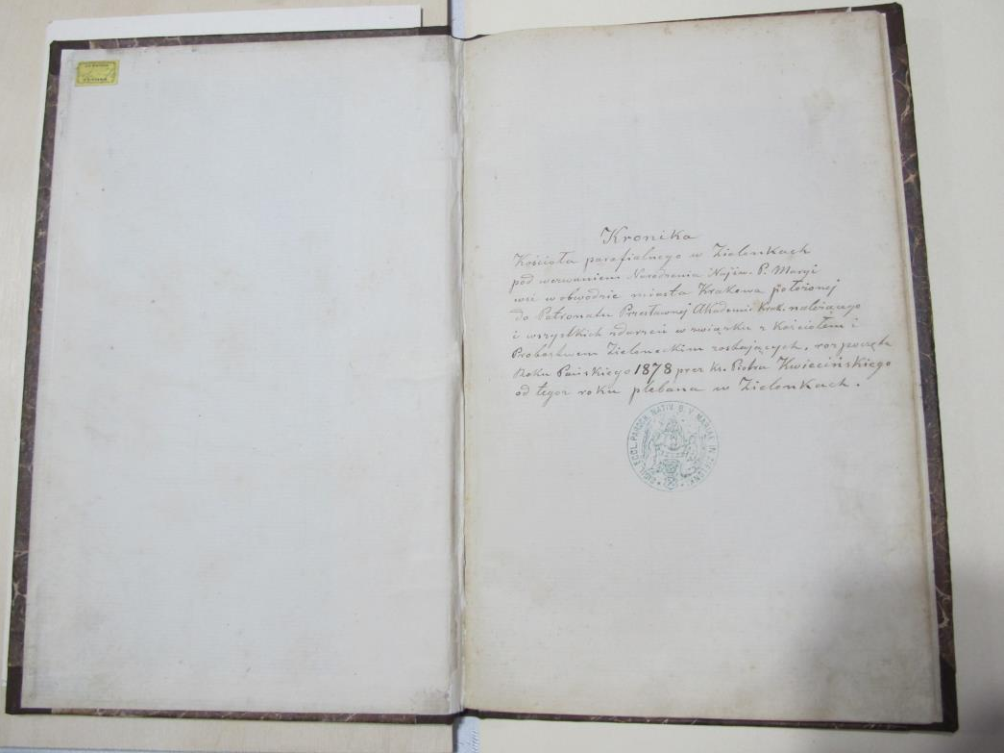 Kronika
Kościoła parafialnego w Zielonkach
pod wezwaniem Narodzenia Najśw. P. Maryi
wsi w obwodzie miasta Krakowa położonej
do Patronatu Przesławnej Akademii Krak. należącego
i wszystkich zdarzeń w związku z Kościołem i
Probostwem Zieloneckim zostających, rozpoczęta
Roku Pańskiego 1878 przez ks. Piotra Kwiecińskiego
od tegoż roku plebana w Zielonkach.
SIGIL. ECCL. PAROCH. NATIV. B. V. MARIAE IN ZIELONKI